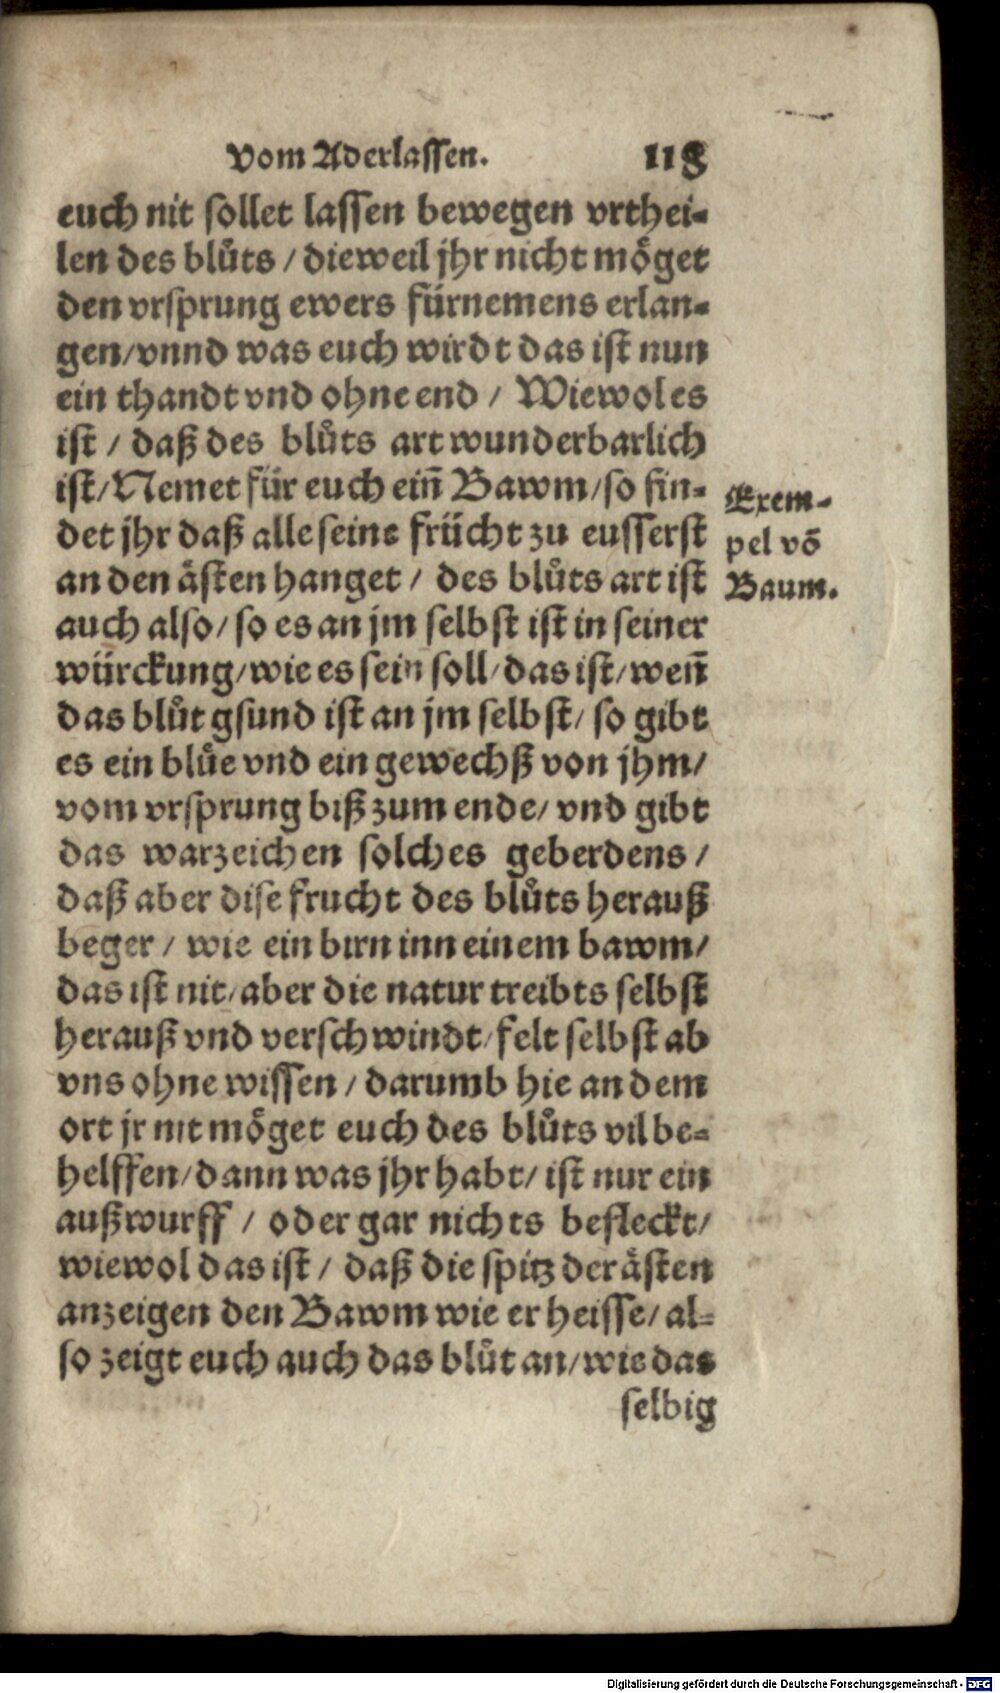 Vom Aderlassen. 118
euch nit sollet lassen bewegen vrthei-
len des blůts / dieweil jhr nicht möget
den vrsprung ewers fürnemens erlan-
gen/vnnd was euch wirdt das ist nun
ein thandt vnd ohne end / Wiewol es
ist / daß des blůts art wunderbarlich
ist/Nemet für euch ein̄ Bawm/so fin-
det jhr daß alle seine frücht zu eusserst
an den ästen hanget / des blůts art ist
auch also/ so es an jm selbst ist in seiner
würckung/wie es sein soll/das ist/wen̄
das blůt gsund ist an jm selbst/ so gibt
es ein blůe vnd ein gewechß von jhm/
vom vrsprung biß zum ende/ vnd gibt
das warzeichen solches geberdens /
daß aber dise frucht des blůts herauß
beger / wie ein birn inn einem bawm/
das ist nit/aber die natur treibts selbst
herauß vnd verschwindt/felt selbst ab
vns ohne wissen / darumb hie an dem
ort jr nit möget euch des blůts vil be-
helffen/dann was jhr habt/ ist nur ein
außwurff / oder gar nichts befleckt/
wiewol das ist / daß die spitz der ästen
anzeigen den Bawm wie er heisse/ al-
so zeigt euch auch das blůt an/wie das
selbig
Exem-
pel võ
Baum.
Digitalisierung gefördert durch die Deutsche Forschungsgemeinschaft - DFG